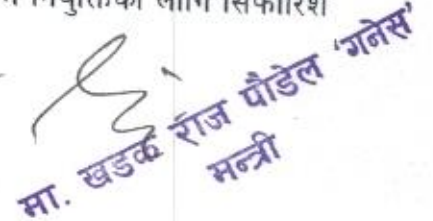 नियुक्तिका लागि सिफारिश
मा. खडक राज पौडेल ‘गनेस’
मन्त्री